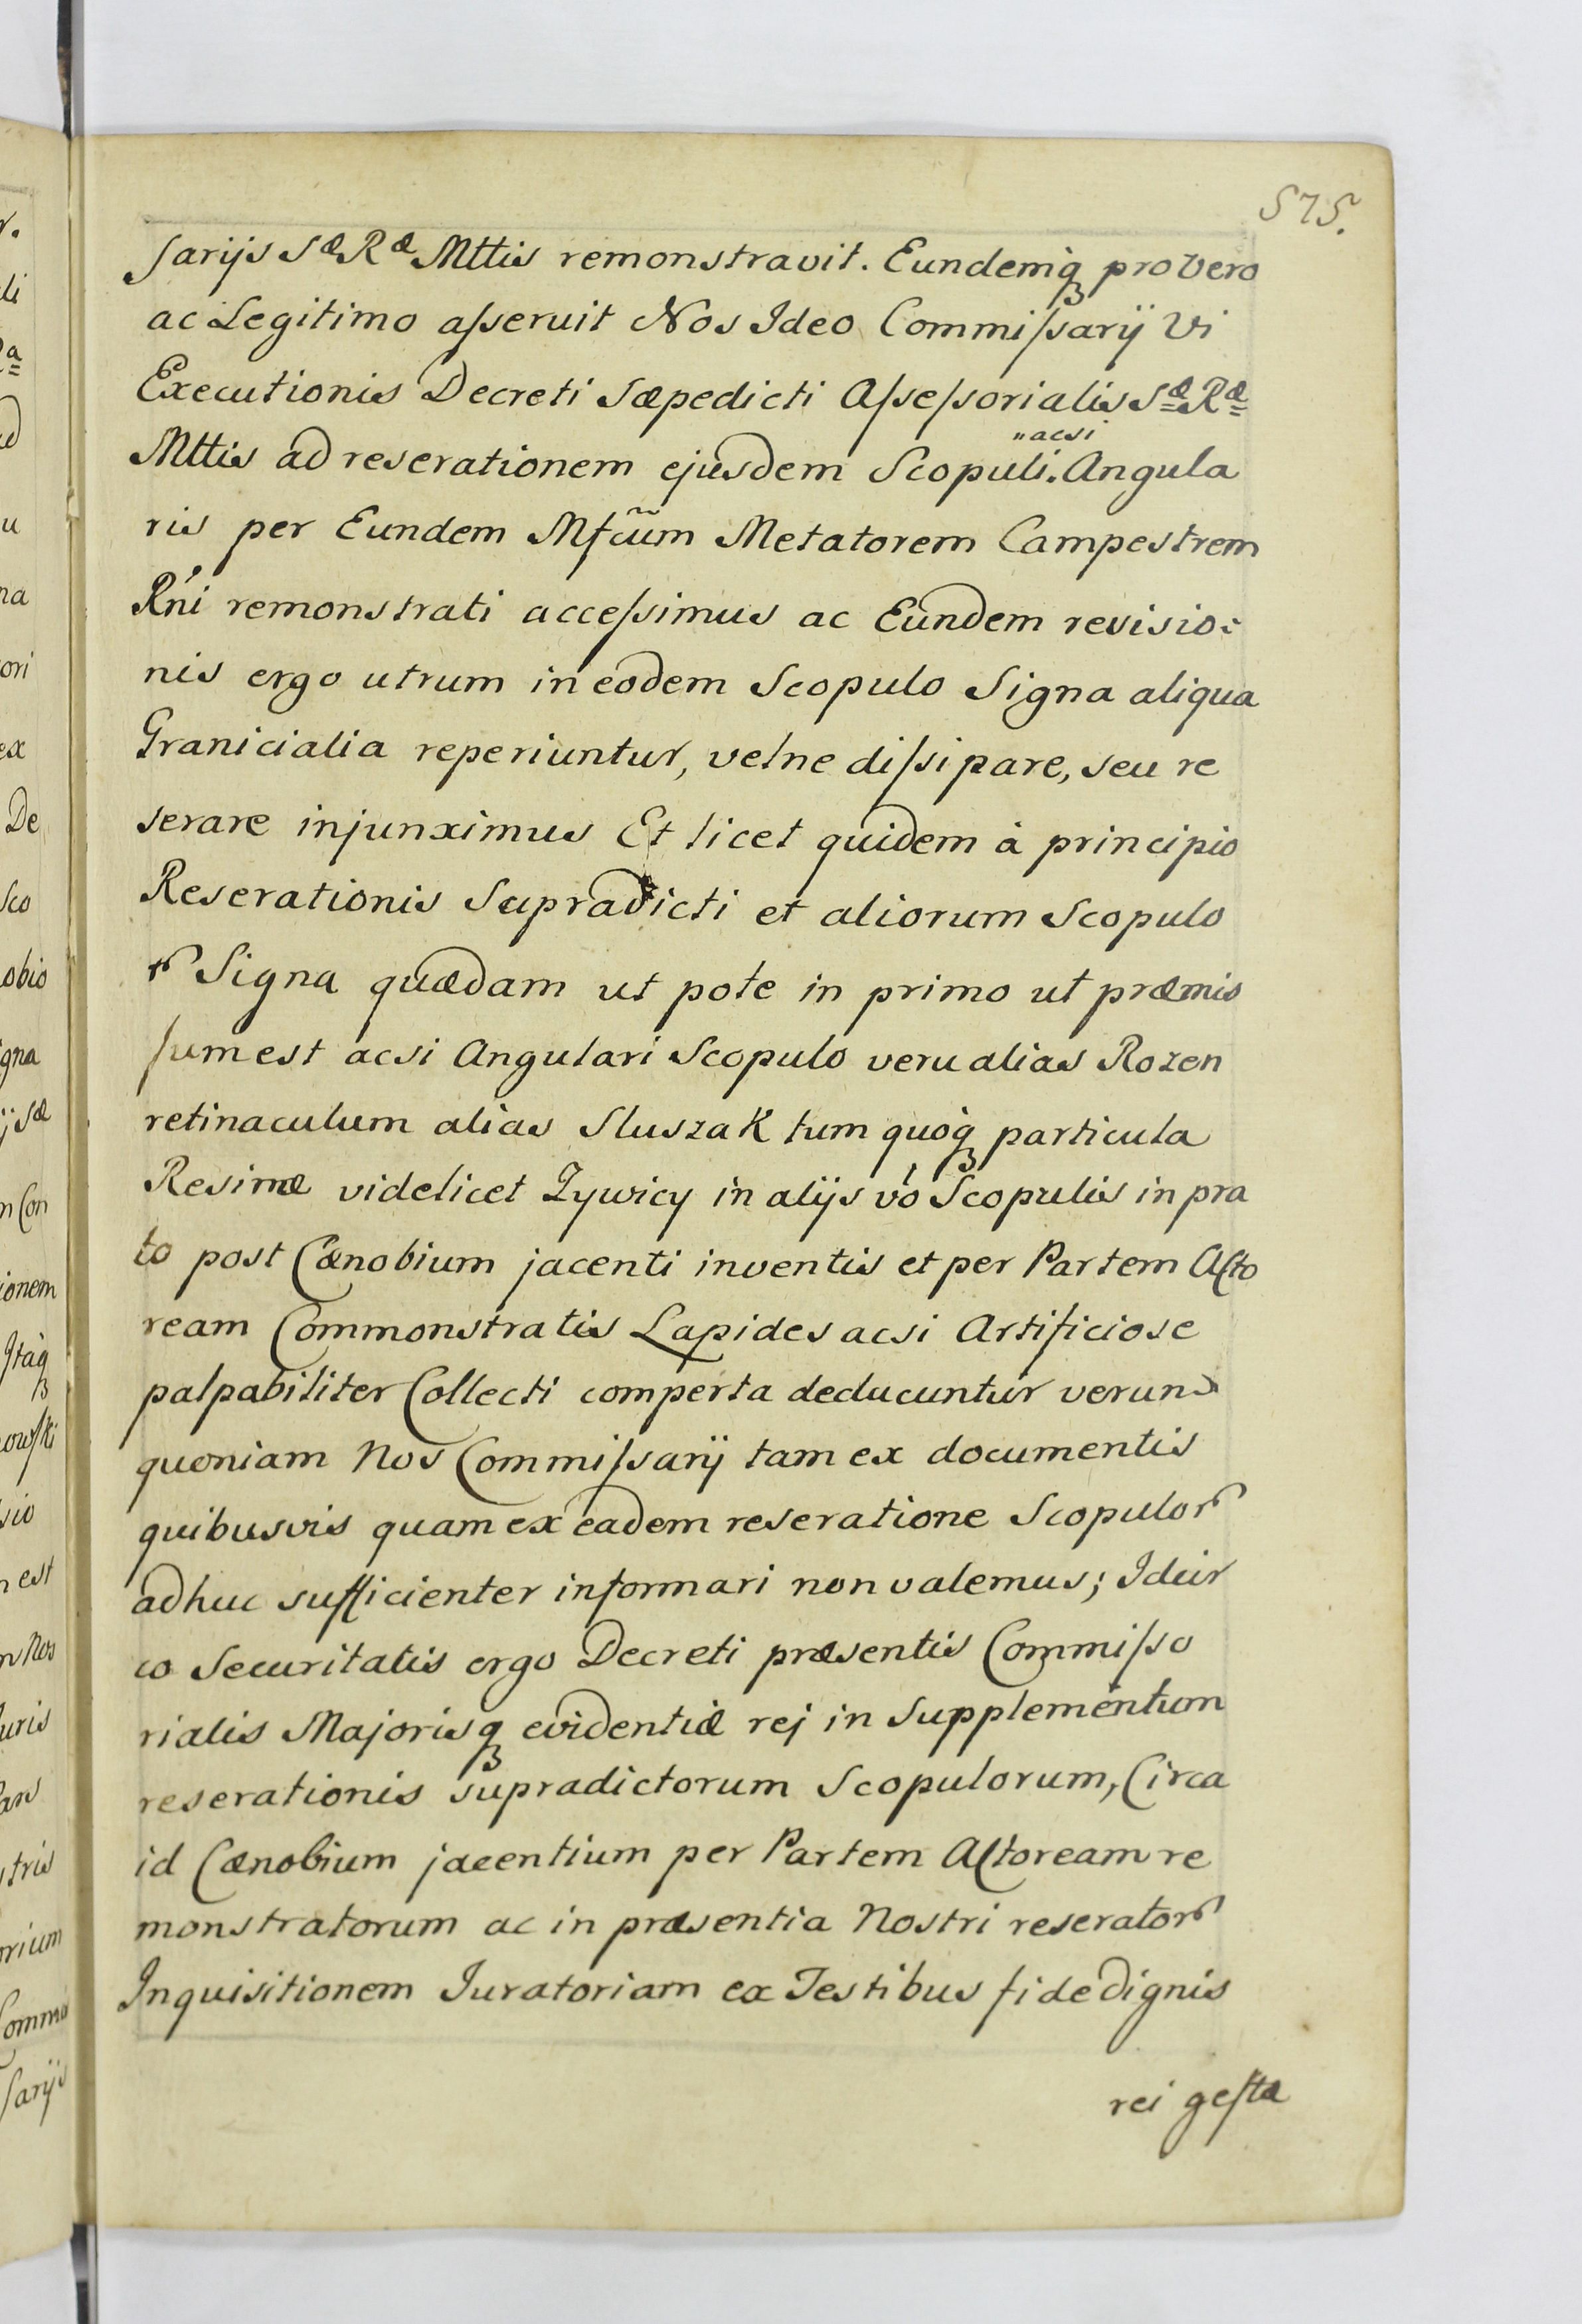 575.
sarijs Sæ Ræ Mttis remonstravit. Eundemq́ꝫ pro Vero
ac Legitimo asseruit Nos Ideo Commissarij Vi
Executionis Decreti Sæpedicti Assessorialis Sæ Ræ
„acsi
Mttis ad reserationem ejusdem Scopuli. Angula
ris per Eundem Mfcũm Metatorem Campestrem
Rńi remonstrati accessimus ac Eundem revisio:
nis ergo utrum in eodem Scopulo Signa aliqua
Granicialia reperiuntur, velne dissipare, seu re
serare injunximus Et licet quidem à principio
Reserationis Supradicti et aliorum Scopulo
r̃ Signa quædam ut pote in primo ut præmis
sum est acsi Angulari Scopulo veru alias Rozen
retinaculum alias Sluszak tum quoq́ꝫ particula
Resinæ videlicet Zywicy in alijs v́o Scopulis in pra
to post Cænobium jacenti inventis et per Partem Acto
ream Commonstratis Lapides acsi Artificiose
palpabiliter Collecti comperta deducuntur verum
quoniam Nos Commissarij tam ex documentis
quibusvis quam ex eadem reseratione Scopulor̃
adhuc sufficienter informari non valemus; Idcir
co Securitatis ergo Decreti præsentis Commisso
rialis Majorisqꝫ evidentiæ rej in Supplementum
reserationis supradictorum Scopulorum, Circa
id Cænobium jacentium per Partem Actoream re
monstratorum ac in præsentia Nostri reserator̃
Inquisitionem Juratoriam ex Testibus fide dignis
rei gestæ